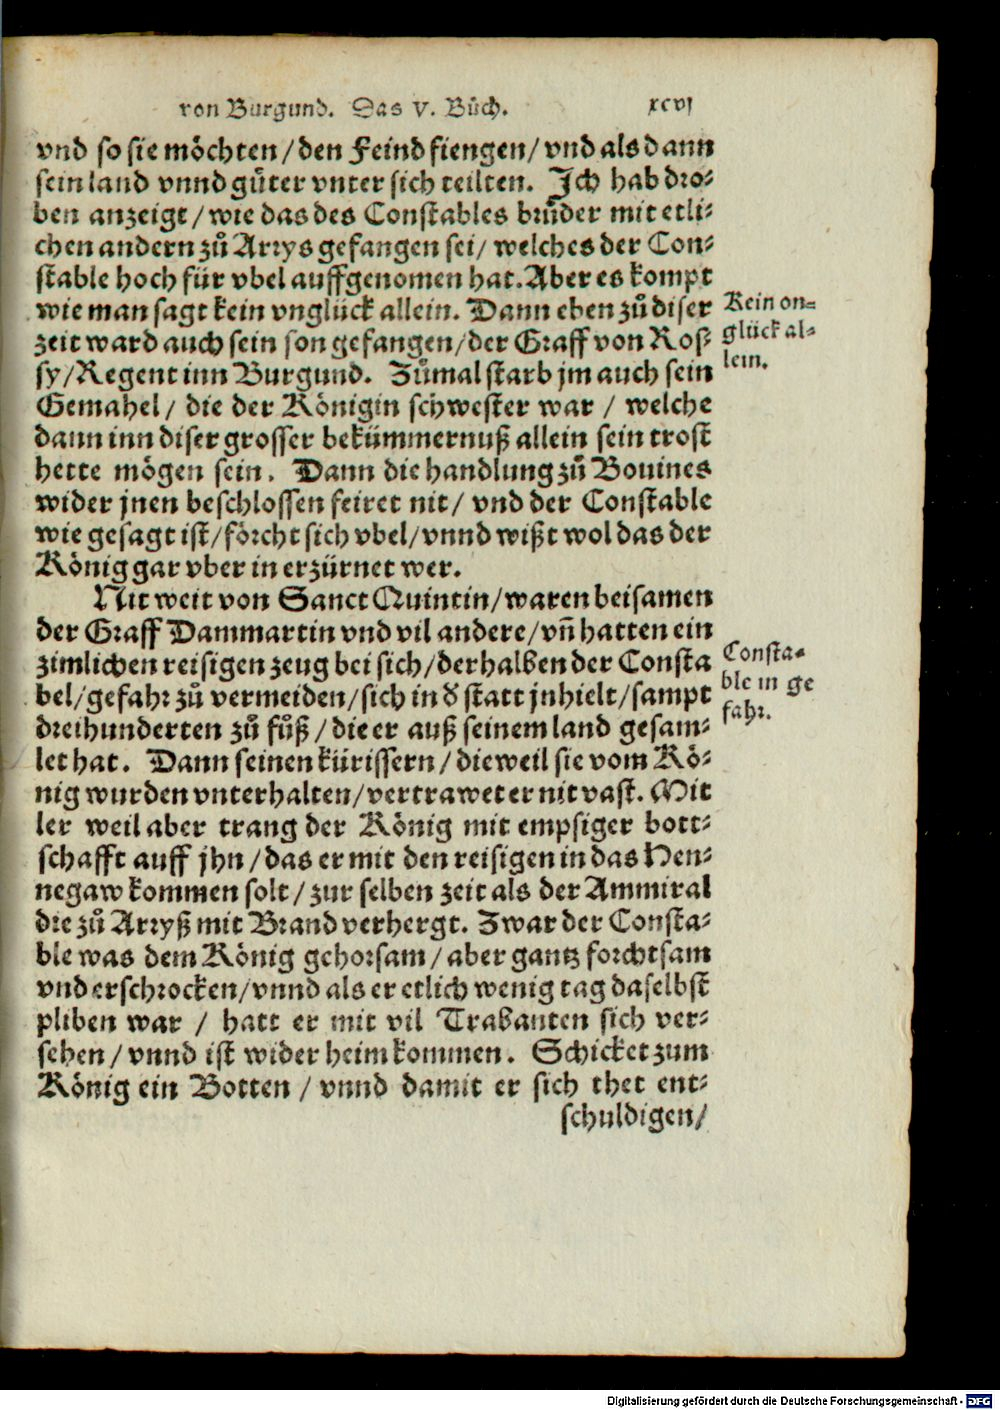 von Burgund. Das V. Bůch. xcvj
vnd so sie möchten / den Feind fiengen / vnd als dann
sein land vnnd gůter vnter sich teilten. Ich hab dro-
ben anzeigt / wie das des Constables brůder mit etli-
chen andern zů Arrys gefangen sei / welches der Con-
stable hoch für vbel auffgenomen hat. Aber es kompt
wie man sagt kein vnglück allein. Dann eben zů diser
zeit ward auch sein son gefangen / der Graff von Ros-
sy / Regent inn Burgund. Zůmal starb jm auch sein
Gemahel / die der Königin schwester war / welche
dann inn diser grosser bekümmernuß allein sein trost
hette mögen sein. Dann die handlung zů Bouines
wider jnen beschlossen feiret nit / vnd der Constable
wie gesagt ist / förcht sich vbel / vnnd wißt wol das der
König gar vber in erzürnet wer.
Kein on-
glück al-
lein.
Nit weit von Sanct Quintin / waren beisamen
der Graff Dammartin vnd vil andere / vñ hatten ein
zimlichen reisigen zeug bei sich / derhalben der Consta
bel / gefahr zů vermeiden / sich in d̕ statt jnhielt / sampt
dreihunderten zů fůß / die er auß seinem land gesam-
let hat. Dann seinen kürissern / dieweil sie vom Kö-
nig wurden vnterhalten / vertrawet er nit vast. Mit
ler weil aber trang der König mit empsiger bott-
schafft auff jhn / das er mit den reisigen in das Hen-
negaw kommen solt / zur selben zeit als der Ammiral
die zů Arryß mit Brand verhergt. Zwar der Consta-
ble was dem König gehorsam / aber gantz forchtsam
vnd erschrocken / vnnd als er etlich wenig tag daselbst
pliben war / hatt er mit vil Trabanten sich ver-
sehen / vnnd ist wider heim kommen. Schicket zum
König ein Botten / vnnd damit er sich thet ent-
schuldigen /
Consta-
ble in ge
fahr.
Digitalisierung gefördert durch die Deutsche Forschungsgemeinschaft - DFG